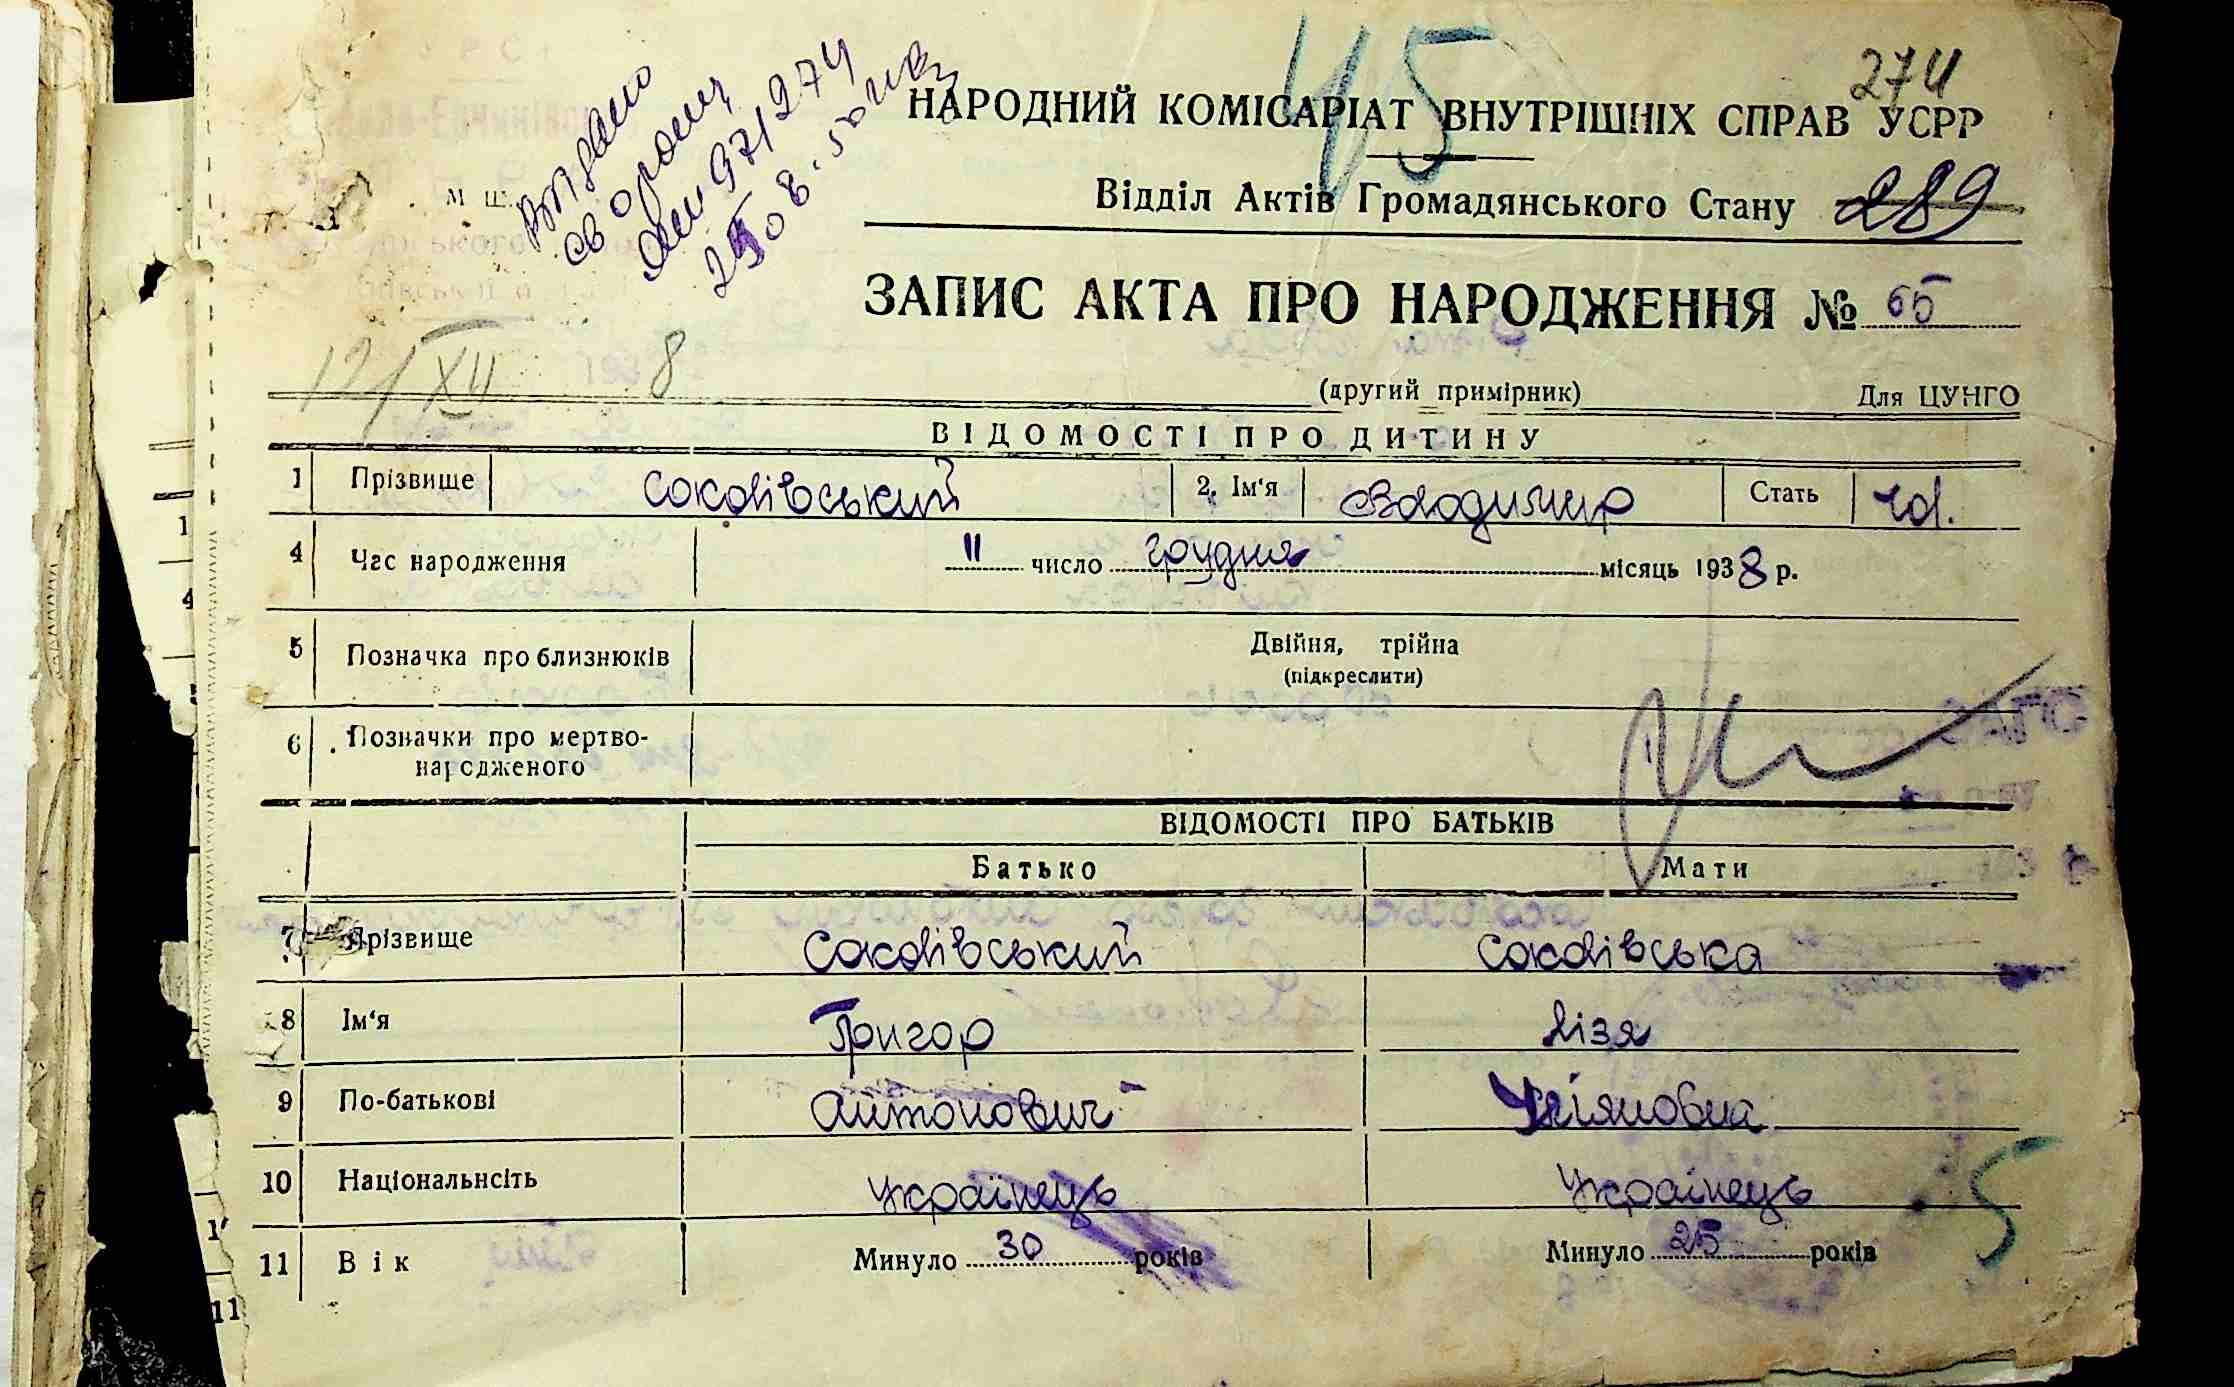 274
45
НАРОДНИЙ КОМІСАРІАТ ВНУТРІШНІХ СПРАВ УСРР
Відділ Актів Громадянського Стану 289
ЗАПИС АКТА ПРО НАРОДЖЕННЯ № 65
12/XII 8
(другий примірник) Для ЦУНГО
ВІДОМОСТІ ПРО ДИТИНУ
1 Прізвище Соколівський 2. Ім'я Володимир Стать чол.
4 Час народження 11 число грудня місяць 1938 р.
5 Позначка про близнюків Двійня, трійна
(підкреслити)
6 Позначки про мертво-
народженого
ВІДОМОСТІ ПРО БАТЬКІВ
Батько Мати
7 Прізвище Соколівський Соколівська
8 Ім'я Григор Лізя
9 По-батькові Антонович
10 Національнсіть Українець Українець
11 Вік Минуло 30 років Минуло 25 років
5